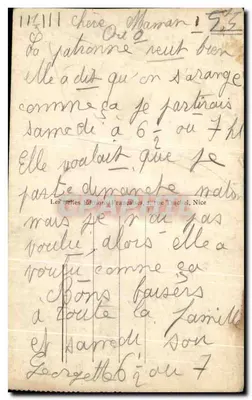 Chère Maman
La patronne veut bien
elle a dit qu'on s'arange
comme ça je partirais
samedi à 6 1/2 ou 7 h
Elle voulait que je
parte dimanche matin
mais je n'ai pas
voulu alors elle a
voulu comme ça
Bons baisers
à toute la famille
et samedi soir
Georgette 6 1/2 ou 7